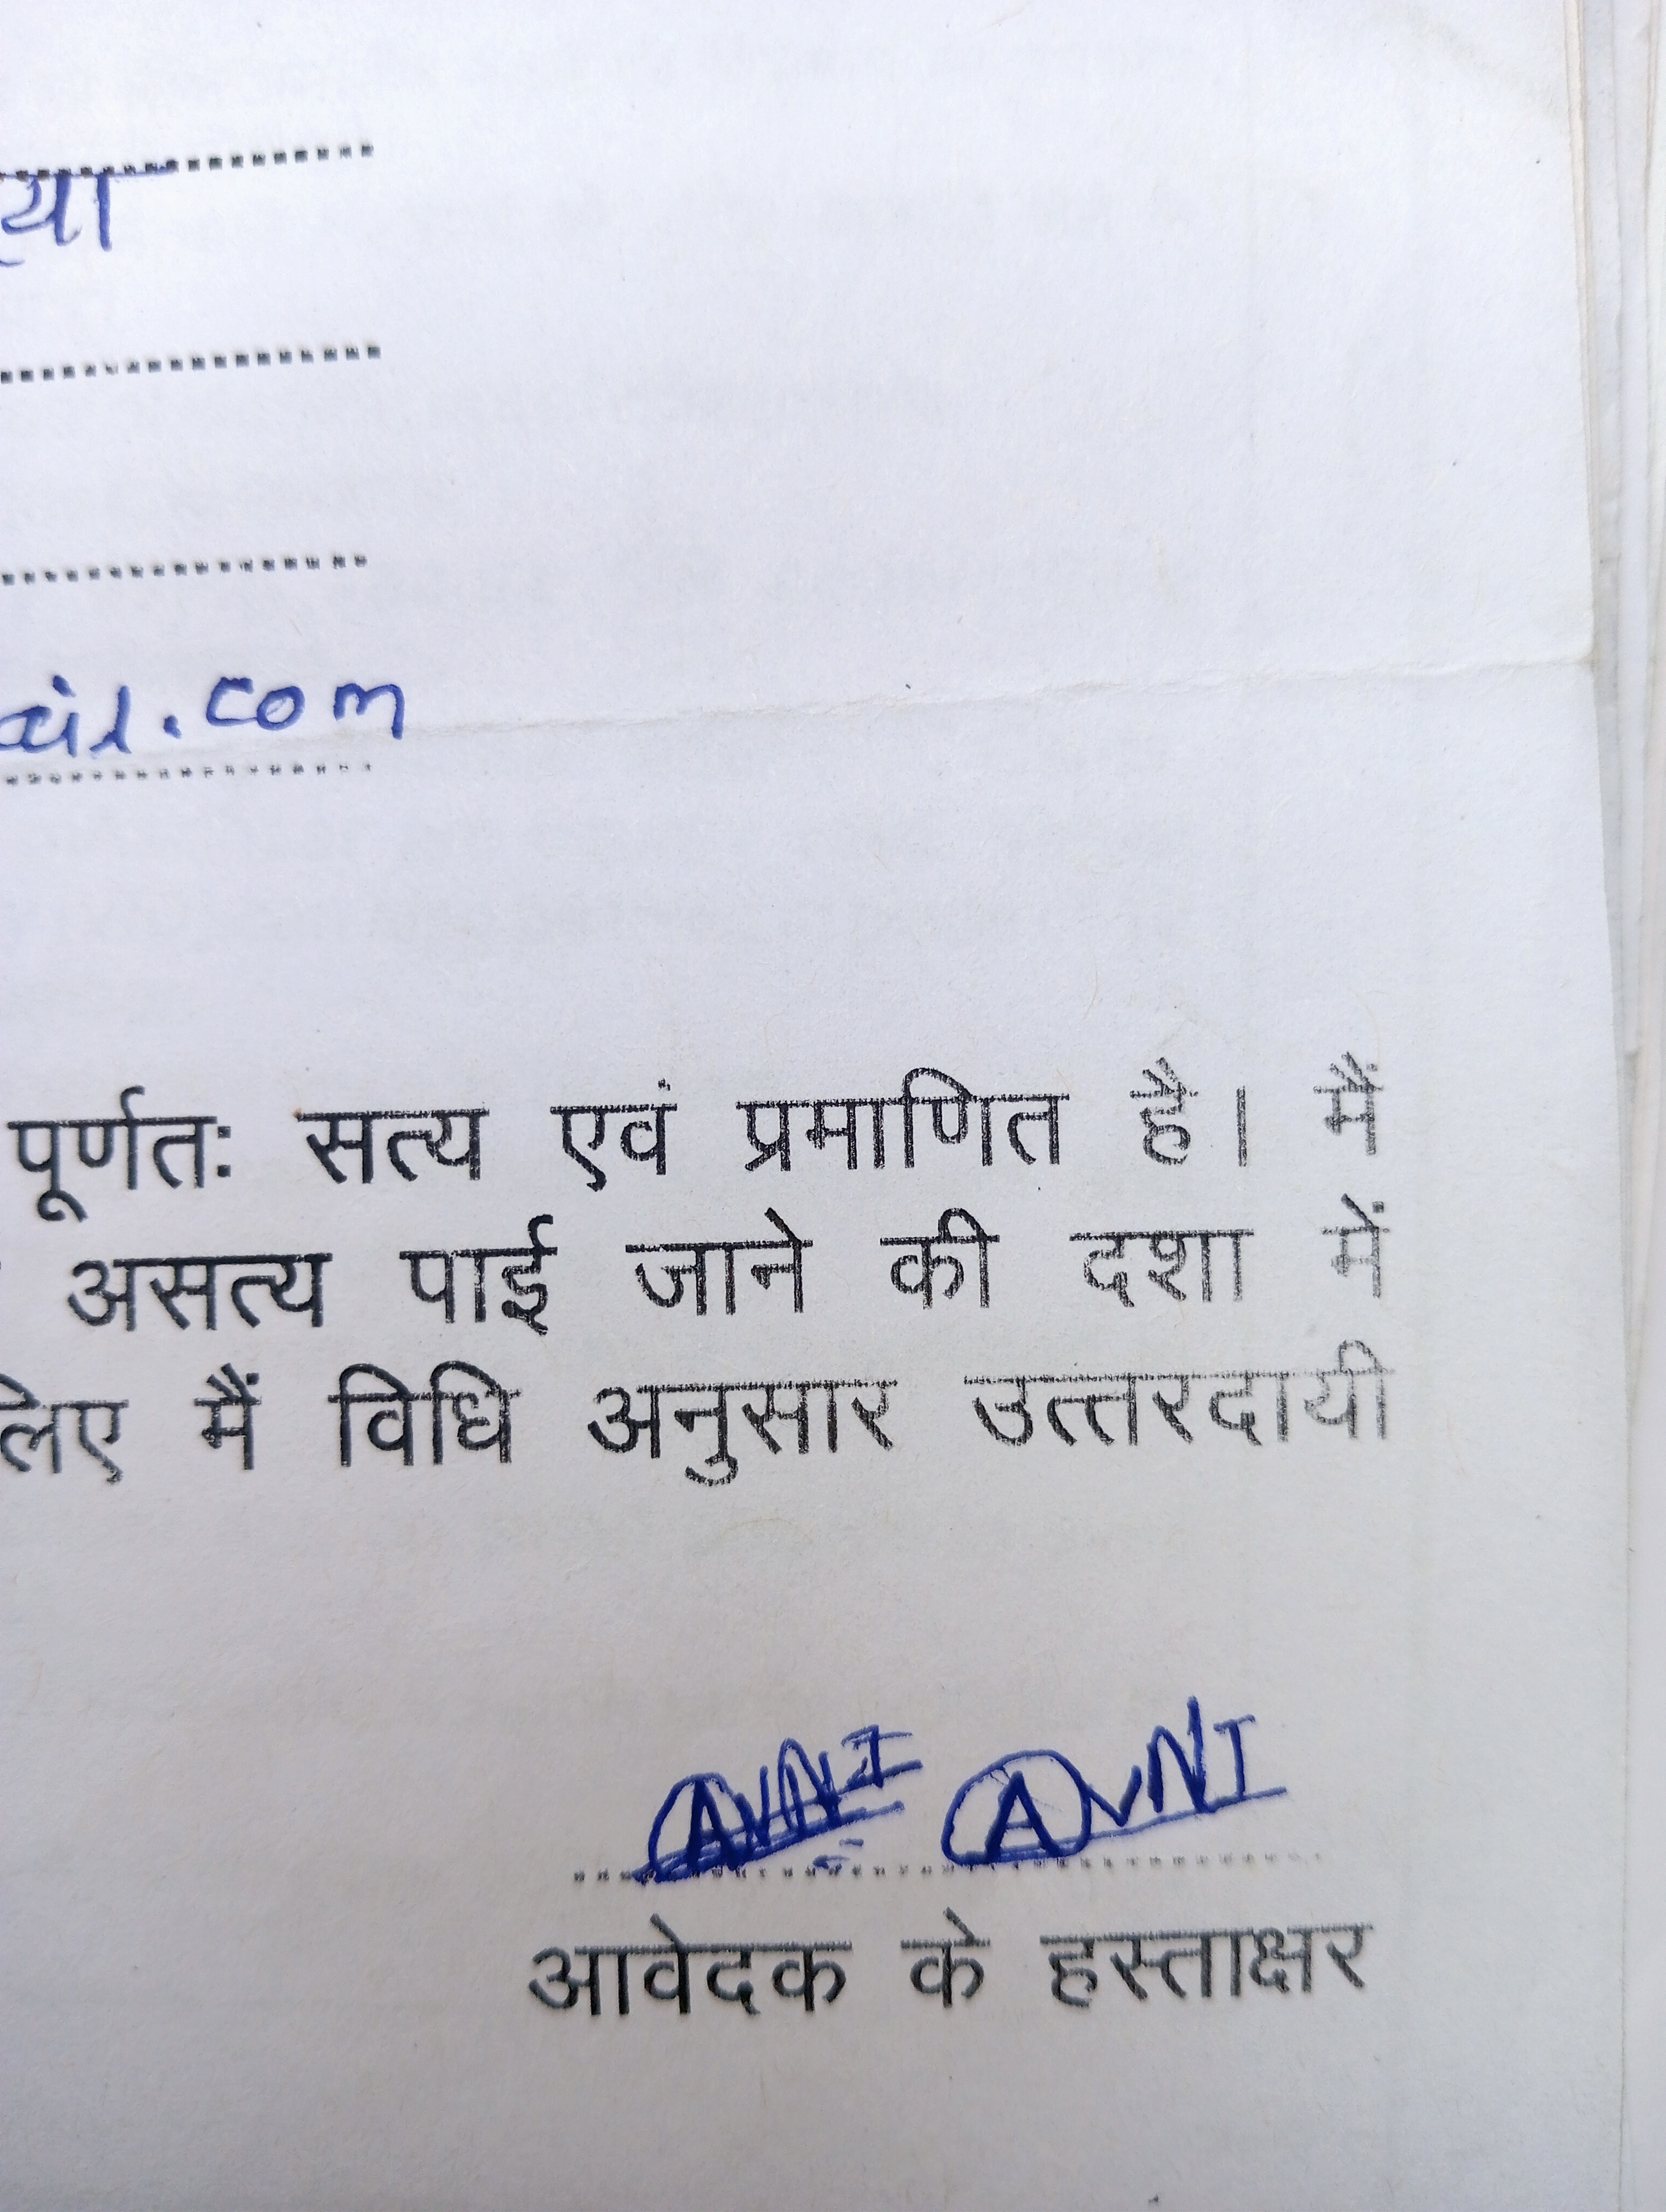 ail.com
पूर्णतः सत्य एवं प्रमाणित है। मैं
असत्य पाई जाने की दशा में
लिए मैं विधि अनुसार उत्तरदायी
AVNI AVNI
आवेदक के हस्ताक्षर